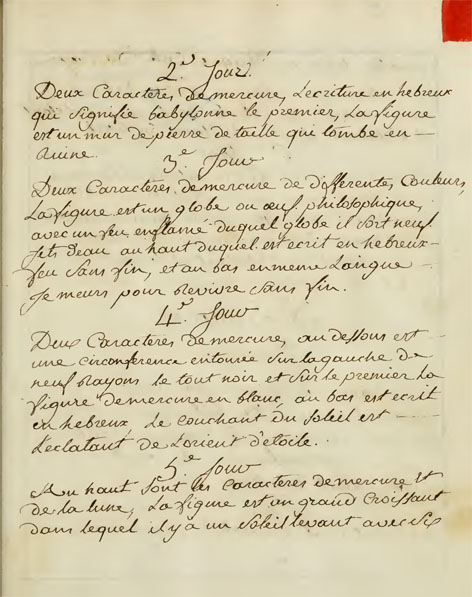 2.e Jour.
Deux Caracteres de mercure, L'ecriture en hebreux
qui signifie babylonne le premier, La figure
est un mur de pierre de taille qui tombe en —
Ruine.
3.e Jour
Deux Caracteres de mercure de differentes Couleurs,
La figure est un globe ou œuf philosophique,
avec un feu enflamé duquel globe il sort neuf
Jets d'eau au haut duquel est ecrit en hebreux-
feu sans fin, et au bas en meme Langue
Je meurs pour Revivre sans fin.
4.e Jour
Deux Caracteres de mercure, au dessous est —
une circonference entourée sur la gauche de
neuf Rayons le tout noir et sur le premier La
figure de mercure en blanc, au bas est ecrit
en hebreux, Le couchant du soleil est —
L'eclatant de L'orient d'etoile.
5.e Jour
Au haut sont les Caracteres de mercure Et
de la lune, La figure est un grand Croissant
dans lequel il y a un soleil levant avec six